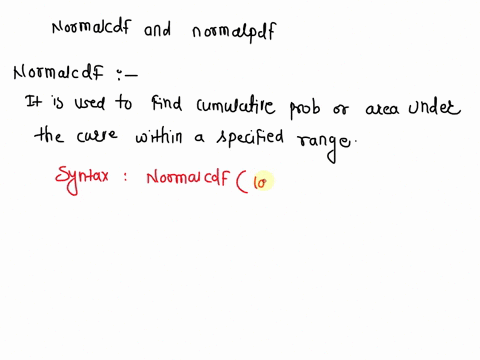 Normalcdf and normalpdf
Normalcdf :-
It is used to find cumulative prob or area under
the curve within a specified range.
Syntax : Normalcdf ( lo